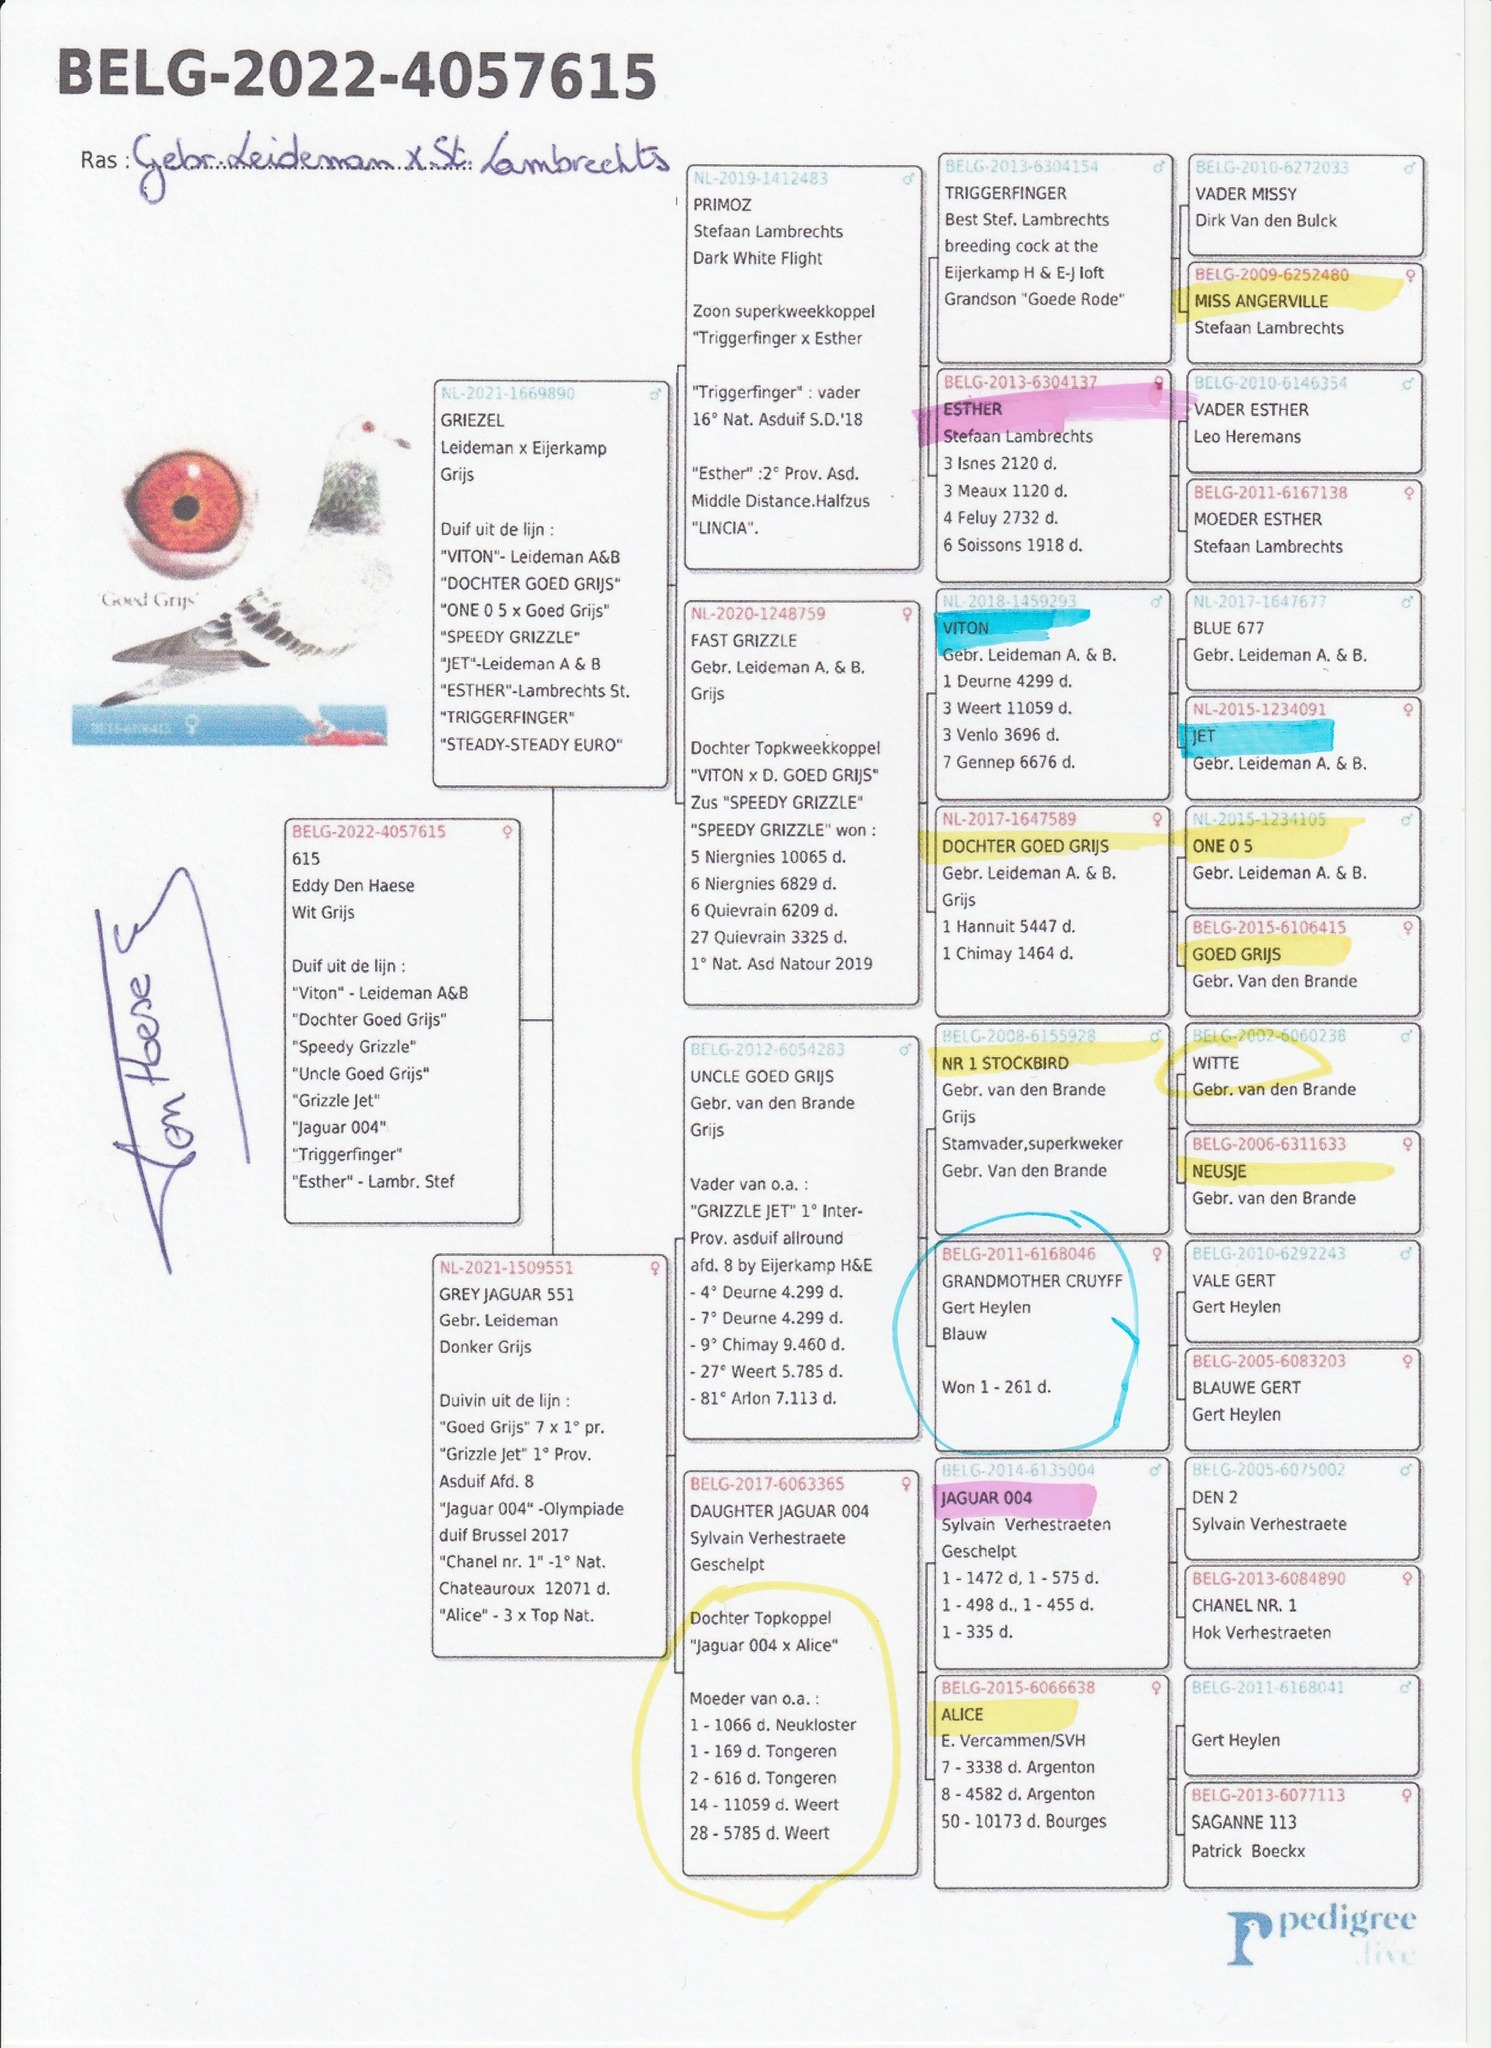 BELG-2022-4057615
Ras : Gebr. Leideman x St. Lambrechts
'Goed Grijs'
BELG-2022-4057615
615
Eddy Den Haese
Wit Grijs
Duif uit de lijn :
"Viton" - Leideman A&B
"Dochter Goed Grijs"
"Speedy Grizzle"
"Uncle Goed Grijs"
"Grizzle Jet"
"Jaguar 004"
"Triggerfinger"
"Esther" - Lambr. Stef
NL-2021-1669890
GRIEZEL
Leideman x Eijerkamp
Grijs
Duif uit de lijn :
"VITON"- Leideman A&B
"DOCHTER GOED GRIJS"
"ONE 0 5 x Goed Grijs"
"SPEEDY GRIZZLE"
"JET"-Leideman A & B
"ESTHER"-Lambrechts St.
"TRIGGERFINGER"
"STEADY-STEADY EURO"
NL-2021-1509551
GREY JAGUAR 551
Gebr. Leideman
Donker Grijs
Duivin uit de lijn :
"Goed Grijs" 7 x 1° pr.
"Grizzle Jet" 1° Prov.
Asduif Afd. 8
"Jaguar 004" -Olympiade
duif Brussel 2017
"Chanel nr. 1" -1° Nat.
Chateauroux 12071 d.
"Alice" - 3 x Top Nat.
NL-2019-1412483
PRIMOZ
Stefaan Lambrechts
Dark White Flight
Zoon superkweekkoppel
"Triggerfinger x Esther
"Triggerfinger" : vader
16° Nat. Asduif S.D.'18
"Esther" :2° Prov. Asd.
Middle Distance.Halfzus
"LINCIA".
NL-2020-1248759
FAST GRIZZLE
Gebr. Leideman A. & B.
Grijs
Dochter Topkweekkoppel
"VITON x D. GOED GRIJS"
Zus "SPEEDY GRIZZLE"
"SPEEDY GRIZZLE" won :
5 Niergnies 10065 d.
6 Niergnies 6829 d.
6 Quievrain 6209 d.
27 Quievrain 3325 d.
1° Nat. Asd Natour 2019
BELG-2012-6054283
UNCLE GOED GRIJS
Gebr. van den Brande
Grijs
Vader van o.a. :
"GRIZZLE JET" 1° Inter-
Prov. asduif allround
afd. 8 by Eijerkamp H&E
- 4° Deurne 4.299 d.
- 7° Deurne 4.299 d.
- 9° Chimay 9.460 d.
- 27° Weert 5.785 d.
- 81° Arlon 7.113 d.
BELG-2017-6063365
DAUGHTER JAGUAR 004
Sylvain Verhestraete
Geschelpt
Dochter Topkoppel
"Jaguar 004 x Alice"
Moeder van o.a. :
1 - 1066 d. Neukloster
1 - 169 d. Tongeren
2 - 616 d. Tongeren
14 - 11059 d. Weert
28 - 5785 d. Weert
BELG-2013-6304154
TRIGGERFINGER
Best Stef. Lambrechts
breeding cock at the
Eijerkamp H & E-J loft
Grandson "Goede Rode"
BELG-2013-6304137
ESTHER
Stefaan Lambrechts
3 Isnes 2120 d.
3 Meaux 1120 d.
4 Feluy 2732 d.
6 Soissons 1918 d.
NL-2018-1459293
VITON
Gebr. Leideman A. & B.
1 Deurne 4299 d.
3 Weert 11059 d.
3 Venlo 3696 d.
7 Gennep 6676 d.
NL-2017-1647589
DOCHTER GOED GRIJS
Gebr. Leideman A. & B.
Grijs
1 Hannuit 5447 d.
1 Chimay 1464 d.
BELG-2008-6155928
NR 1 STOCKBIRD
Gebr. van den Brande
Grijs
Stamvader,superkweker
Gebr. Van den Brande
BELG-2011-6168046
GRANDMOTHER CRUYFF
Gert Heylen
Blauw
Won 1 - 261 d.
BELG-2014-6135004
JAGUAR 004
Sylvain Verhestraeten
Geschelpt
1 - 1472 d, 1 - 575 d.
1 - 498 d., 1 - 455 d.
1 - 335 d.
BELG-2015-6066638
ALICE
E. Vercammen/SVH
7 - 3338 d. Argenton
8 - 4582 d. Argenton
50 - 10173 d. Bourges
BELG-2010-6272033
VADER MISSY
Dirk Van den Bulck
BELG-2009-6252480
MISS ANGERVILLE
Stefaan Lambrechts
BELG-2010-6146354
VADER ESTHER
Leo Heremans
BELG-2011-6167138
MOEDER ESTHER
Stefaan Lambrechts
NL-2017-1647677
BLUE 677
Gebr. Leideman A. & B.
NL-2015-1234091
JET
Gebr. Leideman A. & B.
NL-2015-1234105
ONE 0 5
Gebr. Leideman A. & B.
BELG-2015-6106415
GOED GRIJS
Gebr. Van den Brande
BELG-2002-6060238
WITTE
Gebr. van den Brande
BELG-2006-6311633
NEUSJE
Gebr. van den Brande
BELG-2010-6292243
VALE GERT
Gert Heylen
BELG-2005-6083203
BLAUWE GERT
Gert Heylen
BELG-2005-6075002
DEN 2
Sylvain Verhestraete
BELG-2013-6084890
CHANEL NR. 1
Hok Verhestraeten
BELG-2011-6168041
Gert Heylen
BELG-2013-6077113
SAGANNE 113
Patrick Boeckx
pedigree
.live